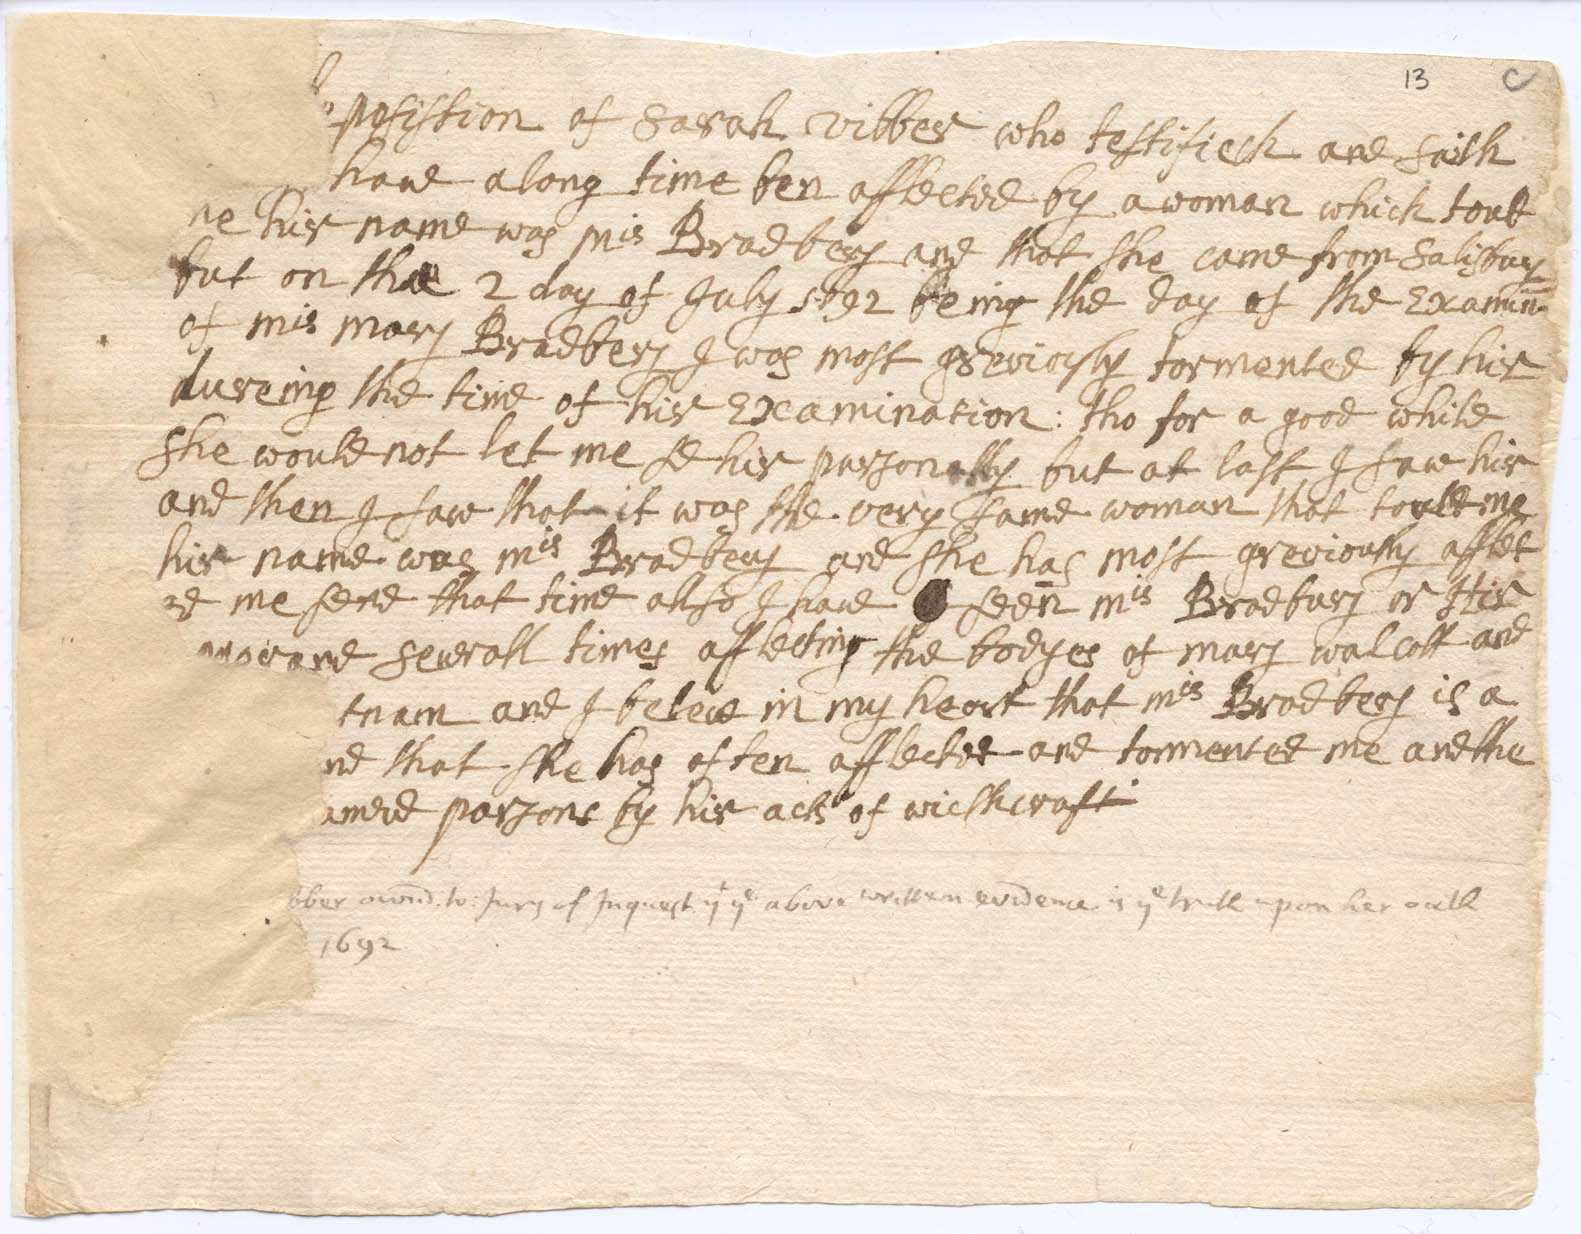 13 C
posistion of Sarah vibber who testifieth and saith
have along time ben afflected by a woman which tould
me hir name was mis Bradbery and that she came from Salisbury
but on the 2 day of July 1692 being the day of the Examin
of mis mary Bradbery I was most greviously tormented by hir
dureing the time of hir Examination: tho for a good while
she would not let me se hir parsonally but at last I saw hir
and then I saw that it was the very same woman that tould me
hir name was mis Bradbery and she has most greviously afflet
ed me sence that time also I have seen mis Bradbury or Hir
Apperance severall times afflecting the bodyes of mary walcott and
tnam and I beleve in my heart that mis Bradbery is a
nd that she has often afflected and tormented me and the
amed parsons by hir acts of wicthcraft
bber ownd. to: Jury of Inquest: yt ye above written evidence: is ye truth upon her oath
1692